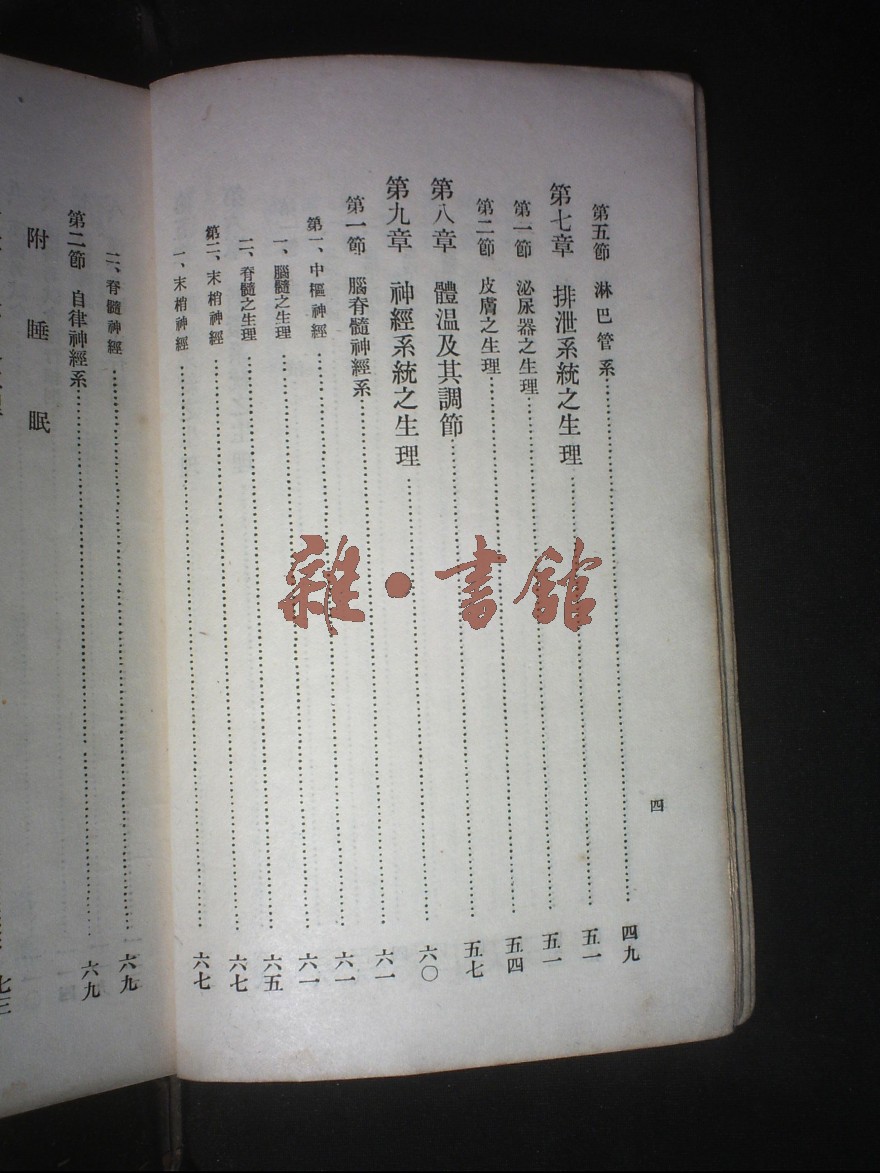 四
第五節 淋巴管系……四九
第七章 排泄系統之生理……五一
第一節 泌尿器之生理……五一
第二節 皮膚之生理……五四
第八章 體温及其調節……五七
第九章 神經系統之生理……六〇
第一節 腦脊髓神經系……六一
第一、中樞神經……六一
一、腦髓之生理……六一
二、脊髓之生理……六五
第二、末梢神經……六七
一、末梢神經……六七
二、脊髓神經……六九
第二節 自律神經系……六九
附 睡眠
雜·書館